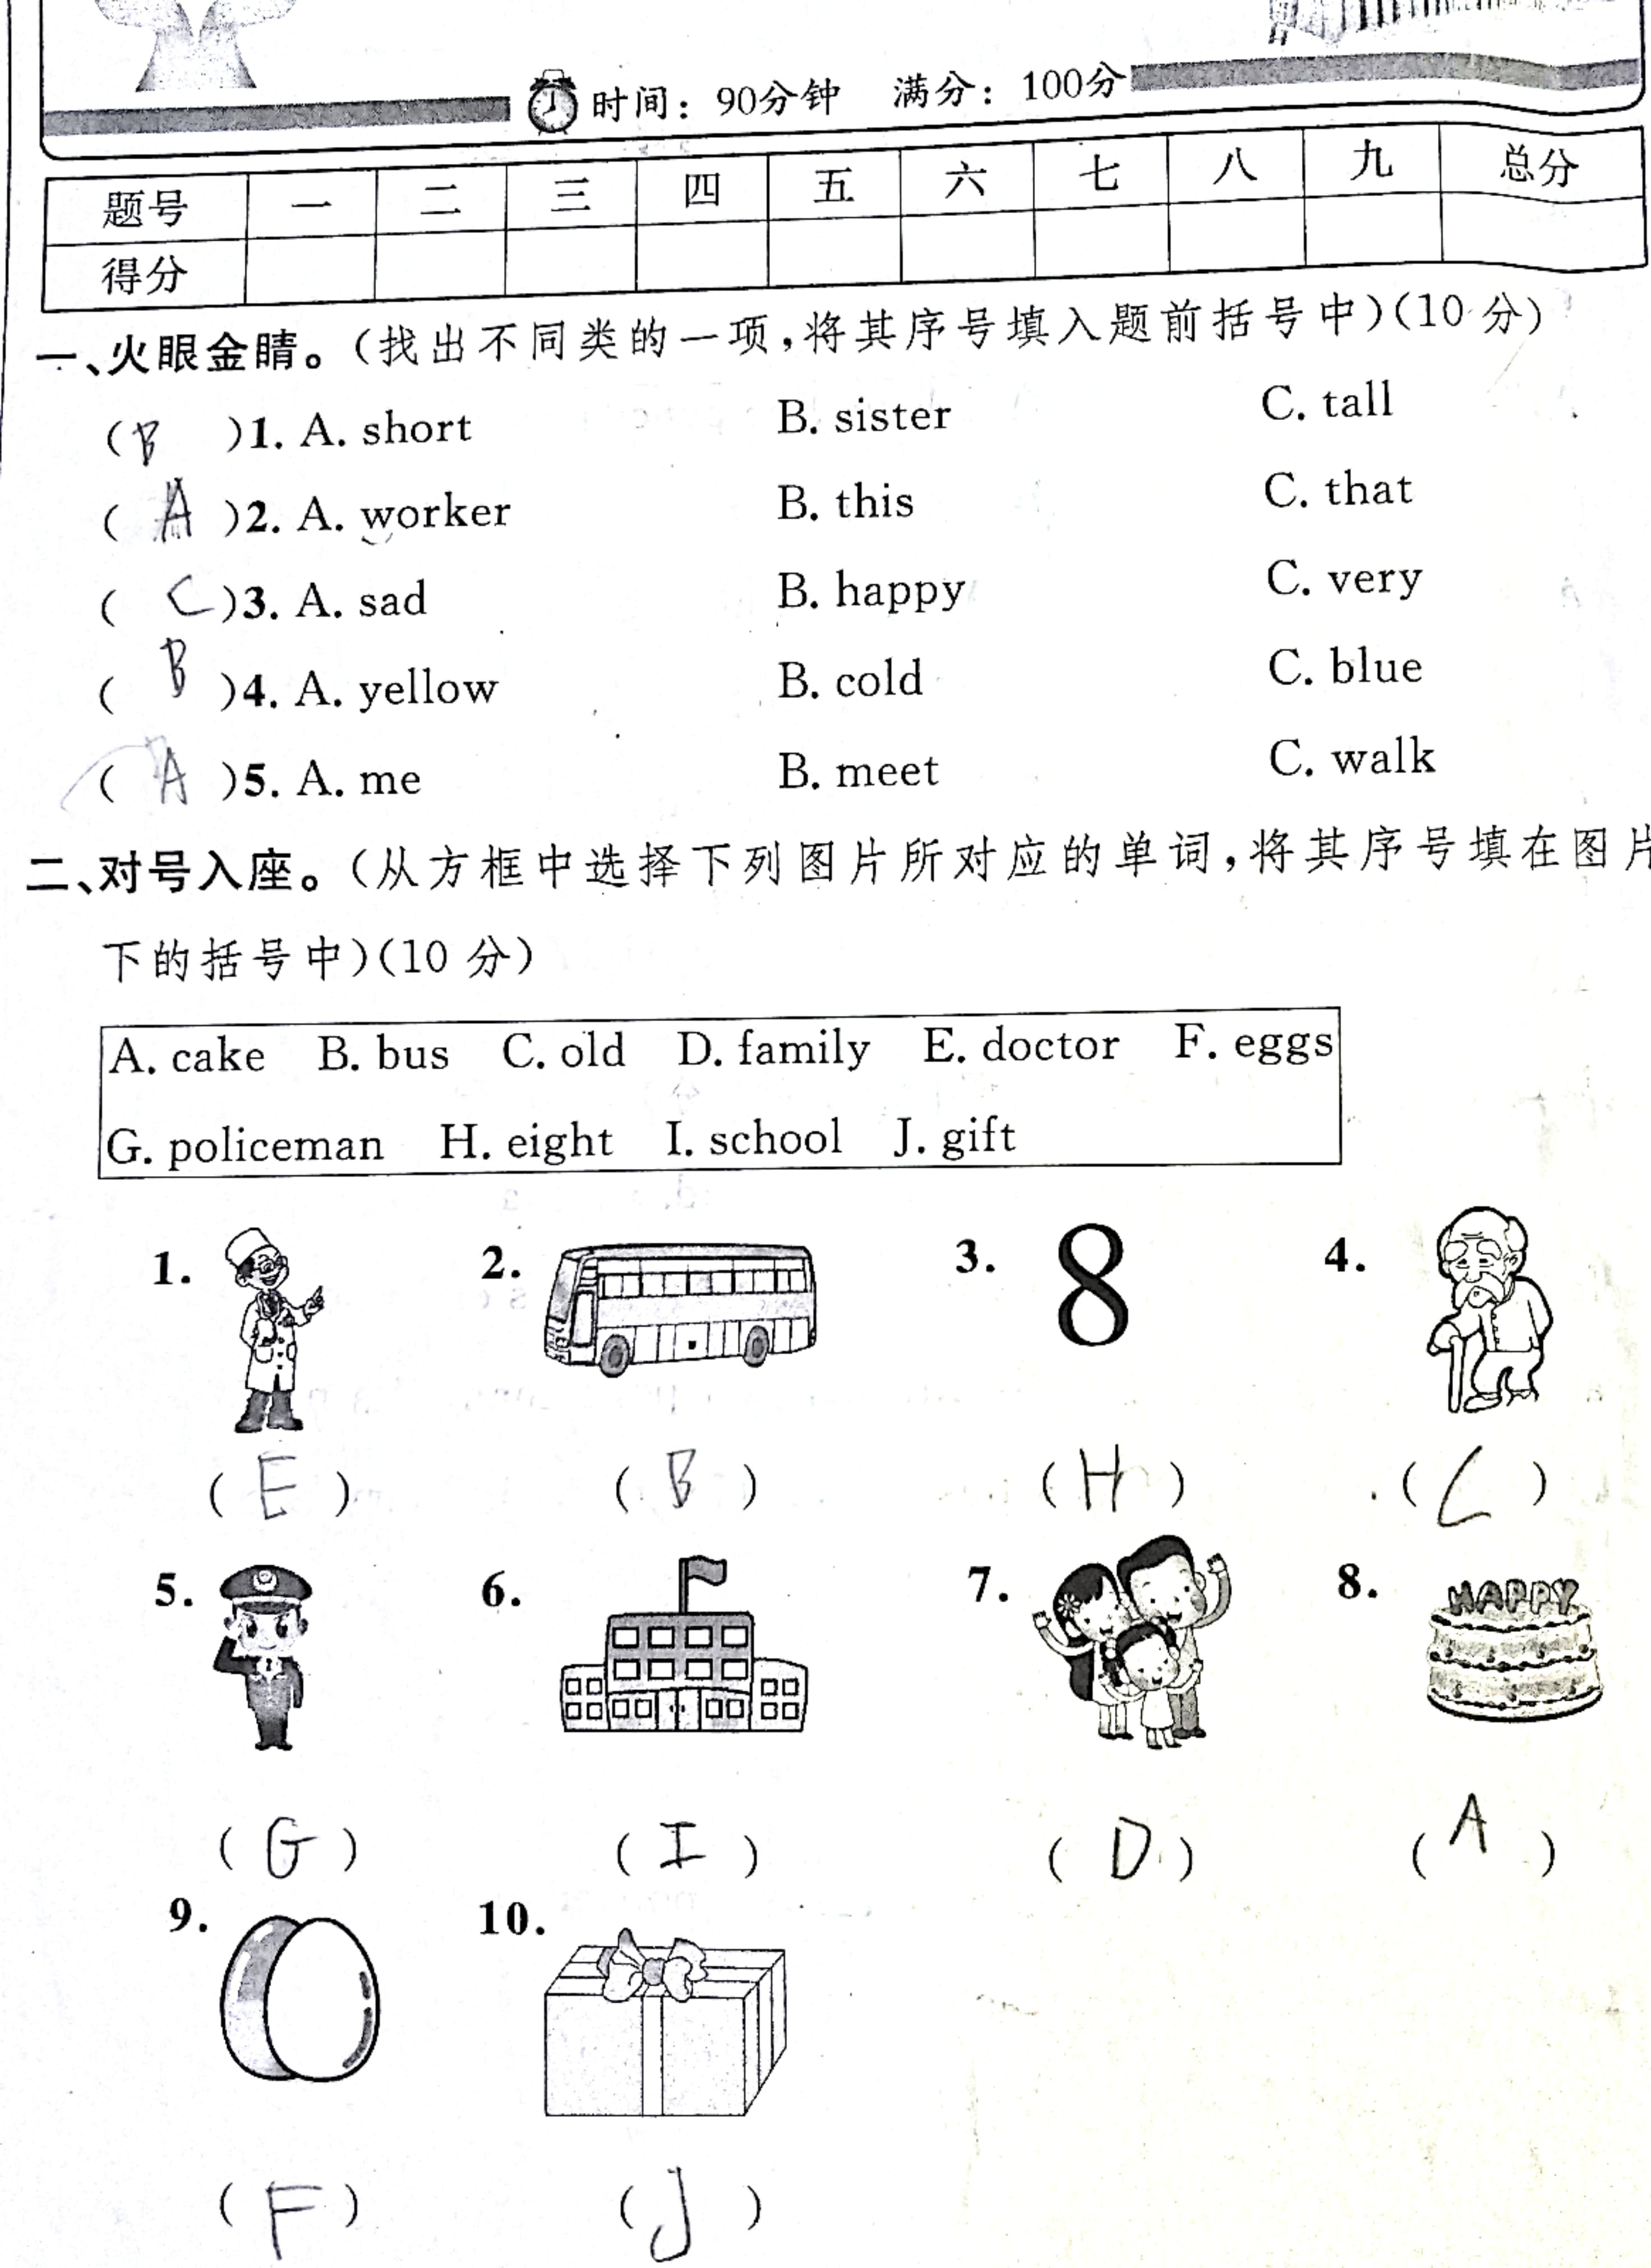 时间：90分钟 满分：100分
题号 一 二 三 四 五 六 七 八 九 总分
得分
一、火眼金睛。（找出不同类的一项，将其序号填入题前括号中）（10分）
（B）1. A. short B. sister C. tall
（A）2. A. worker B. this C. that
（C）3. A. sad B. happy C. very
（B）4. A. yellow B. cold C. blue
（A）5. A. me B. meet C. walk
二、对号入座。（从方框中选择下列图片所对应的单词，将其序号填在图片
下的括号中）（10分）
A. cake B. bus C. old D. family E. doctor F. eggs
G. policeman H. eight I. school J. gift
1. 2. 3. 8 4.
（E） （B） （H） （C）
5. 6. 7. 8. HAPPY
（G） （I） （D） （A）
9. 10.
（F） （J）